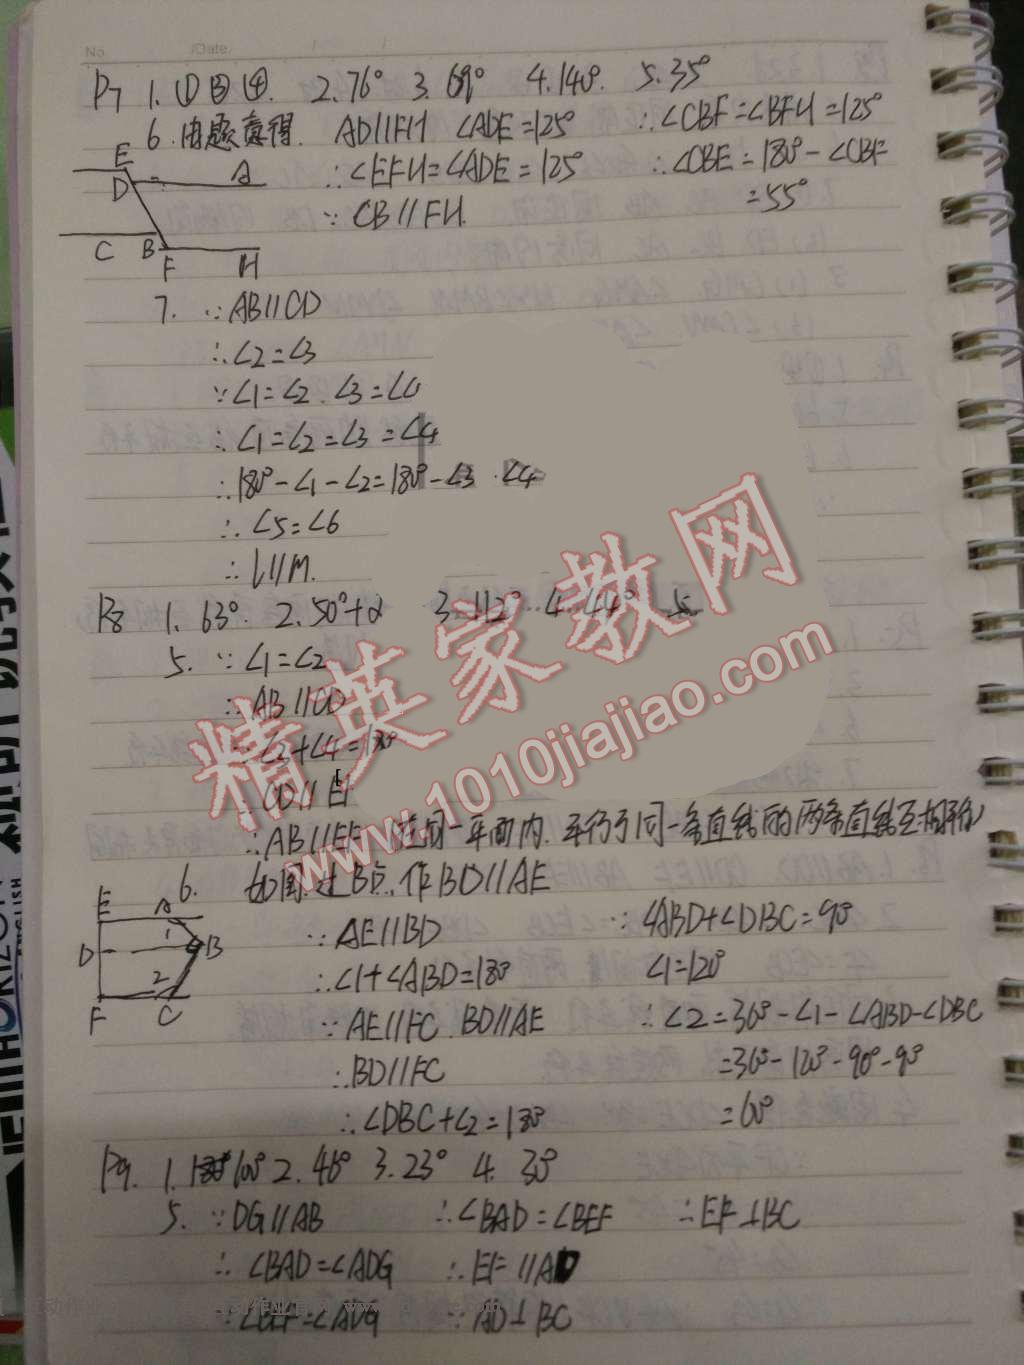 No.   /Date.   /   /
P7 1.①③④. 2.76° 3.69° 4.140° 5.35°
6.由题意得. AD//FH ∠ADE=125° ∴∠CBF=∠BFH=125°
∴∠EFH=∠ADE=125° ∴∠CBE=180°-∠CBF
∵CB//FH. =55°
E
D A
C B
F H
7. ∵AB//CD
∴∠2=∠3
∵∠1=∠2.∠3=∠4
∴∠1=∠2=∠3=∠4
∴180°-∠1-∠2=180°-∠3-∠4
∴∠5=∠6
∴l//M.
P8 1.63°. 2.50°+α 3.112° 4.44° 5
5. ∵∠1=∠2
∴AB//CD
∵∠3+∠4=180°
∴CD//EF
∴AB//EF (在同一平面内.平行于同一条直线的两条直线互相平行)
6. 如图.过B点.作BD//AE
E A
1
D B
2
F C
∵AE//BD ∵∠ABD+∠DBC=90°
∴∠1+∠ABD=180° ∠1=120°
∵AE//FC.BD//AE ∴∠2=360°-∠1-∠ABD-∠DBC
∴BD//FC =360°-120°-90°-90°
∴∠DBC+∠2=180° =60°
P9. 1. 60° 2.46° 3.23° 4.30°
5. ∵DG//AB ∴∠BAD=∠BEF ∴EF⊥BC
∴∠BAD=∠ADG ∴EF//AD
∵∠BEF=∠ADG ∵AD⊥BC
精英家教网
www.1010jiajiao.com